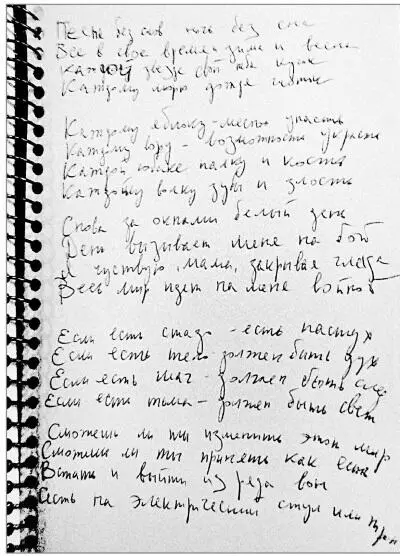 Песня без слов ночь без сна
Все в свое время зима и весна
Каждой звезде свой неба кусок
Каждому морю дождя глоток
Каждому яблоку - место упасть
Каждому вору - возможность украсть
Каждой собаке палку и кость
Каждому волку зубы и злость
Снова за окнами белый день
День вызывает меня на бой
Я чуствую, мама, закрывая глаза
Весь мир идет на меня войной
Если есть стадо - есть пастух
Если есть тело - должен быть дух
Если есть шаг - должен быть след
Если есть тьма - должен быть свет
Сможешь ли ты изменить этот мир
Сможешь ли ты принять как есть
Встать и выйти из ряда вон
Сесть на электрический стул или трон